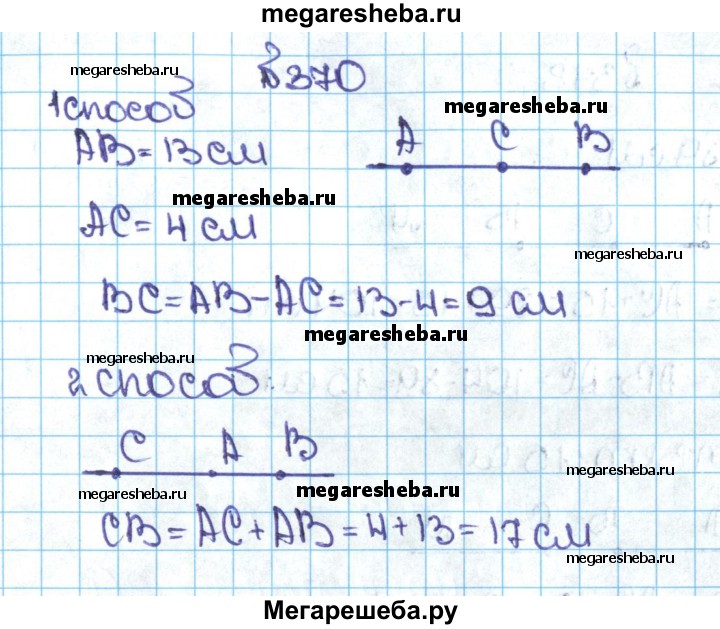 megaresheba.ru
megaresheba.ru
№ 370
1 способ
megaresheba.ru
AB = 13 см
A C B
megaresheba.ru
AC = 4 см
megaresheba.ru
BC = AB - AC = 13 - 4 = 9 см
megaresheba.ru
megaresheba.ru
2 способ:
C A B
megaresheba.ru
megaresheba.ru
megaresheba.ru
CB = AC + AB = 4 + 13 = 17 см
megaresheba.ru
Мегарешеба.ру